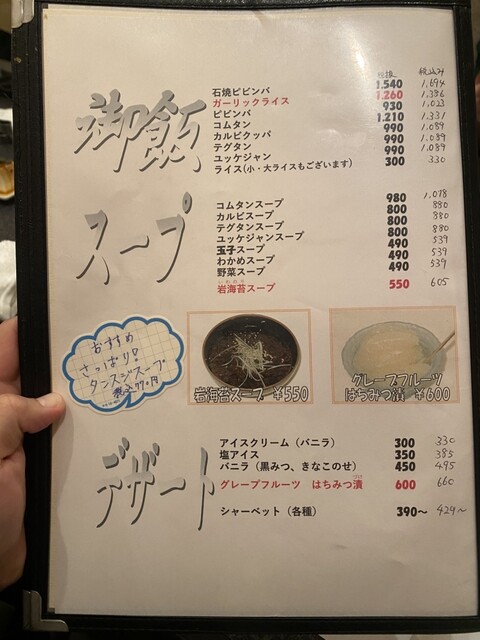 税抜 税込み
御飯
石焼ビビンバ 1.540 1,694
ガーリックライス 1.260 1,386
ビビンバ 930 1,023
コムタン 1.210 1,331
カルビクッパ 990 1,089
テグタン 990 1,089
ユッケジャン 990 1,089
ライス(小・大ライスもございます) 300 330
スープ
コムタンスープ 980 1,078
カルビスープ 800 880
テグタンスープ 800 880
ユッケジャンスープ 800 880
玉子スープ 490 539
わかめスープ 490 539
野菜スープ 490 539
いわのり
岩海苔スープ 550 605
おすすめ
さっぱり!
タンスジスープ
税込770円
岩海苔スープ ¥550
グレープフルーツ
はちみつ漬 ¥600
デザート
アイスクリーム(バニラ) 300 330
塩アイス 350 385
バニラ(黒みつ、きなこのせ) 450 495
グレープフルーツ はちみつ漬 600 660
シャーベット(各種) 390〜 429〜